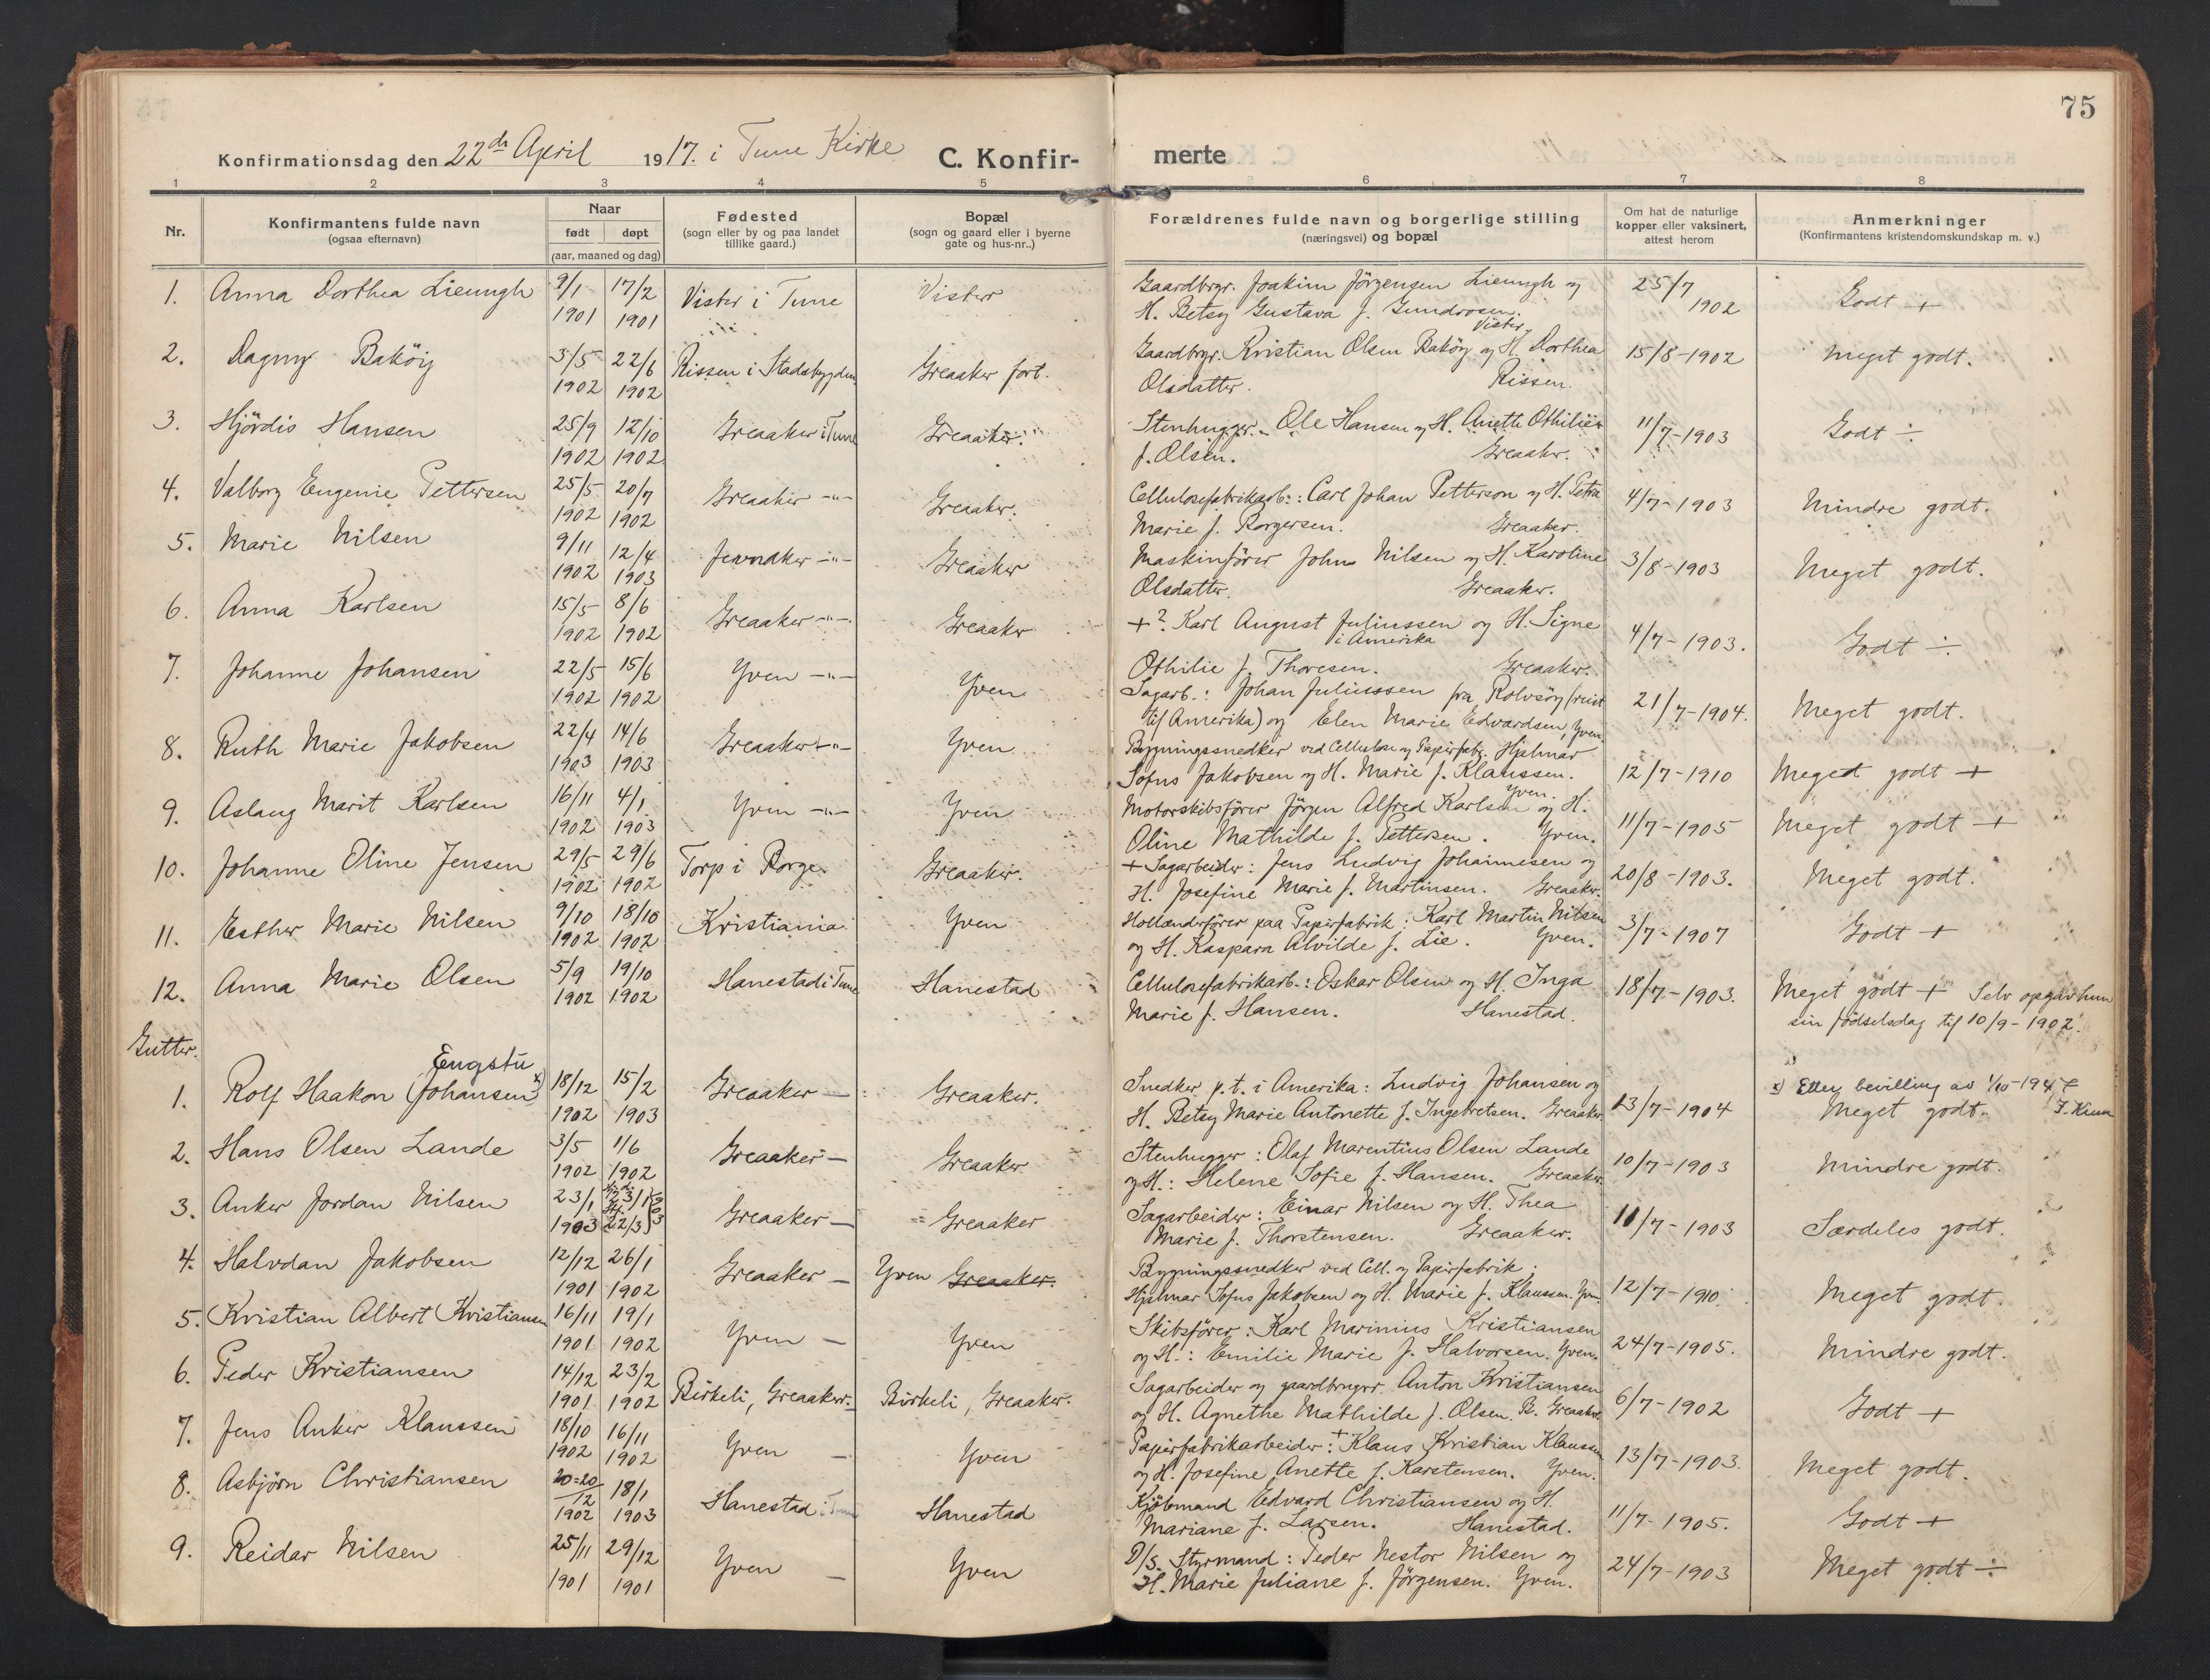 75
Konfirmationsdag den 22de April 1917. i Tune Kirke
C. Konfir-
merte
1 2 3 4 5 6 7 8
Nr.
Konfirmantens fulde navn
(ogsaa efternavn)
Naar
født døpt
(aar, maaned og dag)
Fødested
(sogn eller by og paa landet
tillike gaard.)
Bopæl
(sogn og gaard eller i byerne
gate og hus-nr..)
Forældrenes fulde navn og borgerlige stilling
(næringsvei) og bopæl
Om hat de naturlige
kopper eller vaksinert,
attest herom
Anmerkninger
(Konfirmantens kristendomskundskap m. v.)
1. Anna Dorthea Lieungh 9/1 1901 17/2 1901 Vister i Tune Vister
Gaardbrgr. Joakim Jörgensen Lieungh og
H. Betsy Gustava f. Gundrosen. Vister.
25/7 1902 Godt +
2. Dagny Baköy 3/5 1902 22/6 1902 Rissen i Stadsbygden Greaaker fort.
Gaardbrgr. Kristian Olsen Baköy og H. Dorthea
Olsdatter. Rissen.
15/8-1902 Meget godt.
3. Hjördis Hansen 25/9 1902 12/10 1902 Greaaker i Tune Greaaker.
Stenhugger. Ole Hansen og H. Anette Othilie
f. Olsen. Greaaker.
11/7-1903 Godt ÷
4. Valborg Eugenie Pettersen 25/5 1902 20/7 1902 Greaaker -"- Greaaker.
Cellulosefabrikarb.: Carl Johan Petterson og H. Petra
Marie f. Borgersen. Greaaker.
4/7-1903 Mindre godt.
5. Marie Nilsen 9/11 1902 12/4 1903 -"- Greaaker
Maskinförer John Nilsen og H. Karoline
Olsdatter. Greaaker.
3/8-1903 Meget godt.
6. Anna Karlsen 15/5 1902 8/6 1902 Greaaker -"- Greaaker
+? Karl August Juliussen og H. Signe
i Amerika
Othilie f. Thoresen. Greaaker.
4/7-1903. Godt ÷
7. Johanne Johansen 22/5 1902 15/6 1902 Yven -"- Yven
Sagarb.: Johan Juliussen fra Rolvsöy (reist
til Amerika) og Elen Marie Edvardsen, Yven
21/7-1904. Meget godt.
8. Ruth Marie Jakobsen 22/4 1903 14/6 1903 Greaaker -"- Yven
Bygningssnedker ved Cellulose og Papirfabr. Hjalmar
Sofus Jakobsen og H. Marie f. Klaussen. Yven.
12/7-1910 Meget godt +
9. Aslaug Marit Karlsen 16/11 1902 4/1 1903 Yven -"- Yven
Motorskibsförer Jörgen Alfred Karlsen og H.
Oline Mathilde f. Pettersen. Yven.
11/7-1905 Meget godt +
10. Johanne Oline Jensen 29/5 1902 29/6 1902 Torp i Borge. Greaaker.
+ Sagarbeider: Jens Ludvig Johannesen og
H. Josefine Marie f. Martinsen. Greaaker.
20/8-1903. Meget godt.
11. Esther Marie Nilsen 9/10 1902 18/10 1902 Kristiania Yven
Hollænderförer paa Papirfabrik: Karl Martin Nilsen
og H. Kaspara Alvilde f. Lie. Yven.
3/7-1907 Godt +
12. Anna Marie Olsen 5/9 1902 19/10 1902 Hanestad i Tune Hanestad
Cellulosefabrikarb.: Oskar Olsen og H. Inga
Marie f. Hansen. Hanestad.
18/7-1903. Meget godt + Selv opgav hun
sin födselsdag til 10/9-1902.
Gutter.
Engstu x)
1. Rolf Haakon (Johansen) 18/12 1902 15/2 1903 Greaaker — Greaaker.
Snedker p.t. i Amerika: Ludvig Johansen og
H. Betsy Marie Antonette f. Ingebretsen. Greaaker
13/7-1904 x) Etter bevilling av 1/10-1947
Meget godt.
2. Hans Olsen Lande 3/5 1902 1/6 1902 Greaaker — Greaaker
Stenhugger: Olaf Marentius Olsen Lande
og H.: Helene Sofie f. Hansen. Greaaker.
10/7-1903 Mindre godt.
3. Anker Jordan Nilsen 23/1 1903 23/1 22/3 1903 Greaaker — Greaaker
Sagarbeider: Einar Nilsen og H. Thea
Marie f. Thorstensen. Greaaker.
11/7-1903 Særdeles godt.
4. Halvdan Jakobsen 12/12 1901 26/1 1902 Greaaker — Yven Greaaker.
Bygningssnedker ved Cell. og Papirfabrik:
Hjalmar Sofus Jakobsen og H. Marie f. Klaussen. Yven.
12/7-1910. Meget godt.
5. Kristian Albert Kristiansen 16/11 1901 19/1 1902 Yven — Yven
Skibsförer: Karl Marinius Kristiansen
og H.: Emilie Marie f. Halvorsen. Yven.
24/7-1905. Mindre godt.
6. Peder Kristiansen 14/12 1901 23/2 1902 Birkeli, Greaaker. Birkeli, Greaaker.
Sagarbeider og gaardbruger. Anton Kristiansen
og H. Agnethe Mathilde f. Olsen. B. Greaaker.
6/7-1902 Godt +
7. Jens Anker Klaussen 18/10 1902 16/11 1902 Yven — Yven
Papirfabrikarbeider: + Klaus Kristian Klaussen
og H. Josefine Anette f. Karstensen. Yven.
13/7-1903. Meget godt.
8. Asbjörn Christiansen 20=20/12 1902 18/1 1903 Hanestad i Tune Hanestad
Kjöbmand Edvard Christiansen og H.
Mariane f. Larsen. Hanestad.
11/7-1905. Godt +
9. Reidar Nilsen 25/11 1901 29/12 1901 Yven — Yven
D/S. Styrmand: Peder Nestor Nilsen og
H. Marie Juliane f. Jörgensen. Yven.
24/7-1903 Meget godt ÷